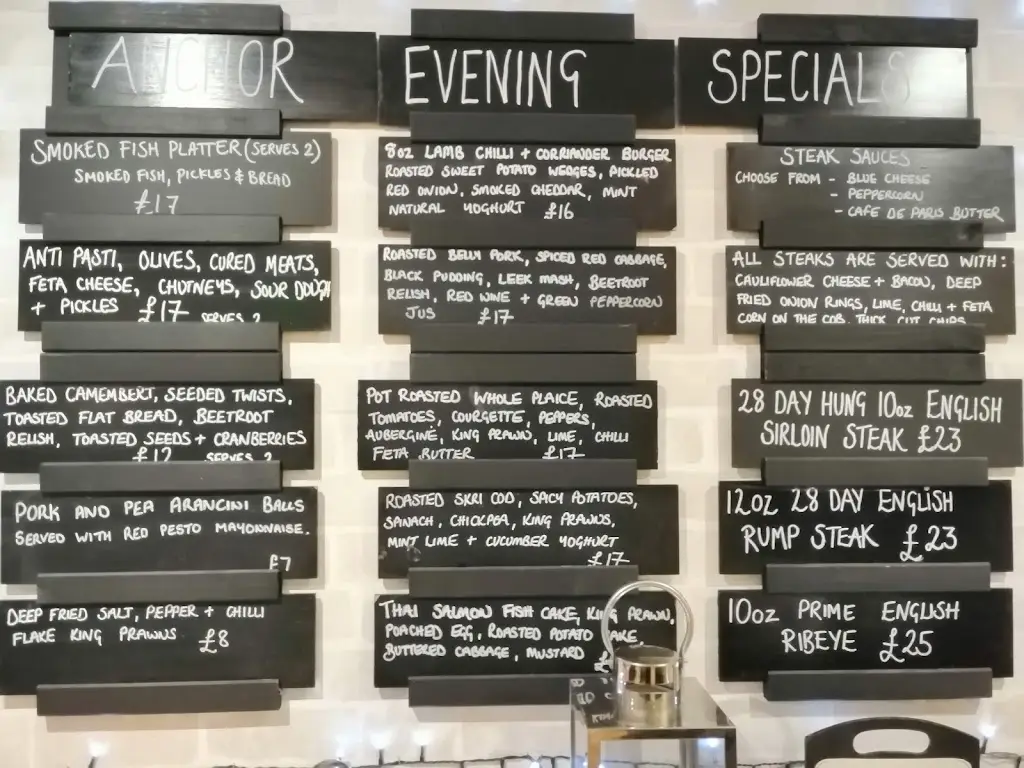 ANCHOR EVENING SPECIALS
SMOKED FISH PLATTER (SERVES 2)
SMOKED FISH, PICKLES & BREAD
£17
ANTI PASTI, OLIVES, CURED MEATS,
FETA CHEESE, CHUTNEYS, SOUR DOUGH
+ PICKLES £17 SERVES 2
BAKED CAMEMBERT, SEEDED TWISTS,
TOASTED FLAT BREAD, BEETROOT
RELISH, TOASTED SEEDS + CRANBERRIES
£12 SERVES 2
PORK AND PEA ARANCINI BALLS
SERVED WITH RED PESTO MAYONNAISE.
£7
DEEP FRIED SALT, PEPPER + CHILLI
FLAKE KING PRAWNS £8
8oz LAMB CHILLI + CORRIANDER BURGER
ROASTED SWEET POTATO WEDGES, PICKLED
RED ONION, SMOKED CHEDDAR, MINT
NATURAL YOGHURT £16
ROASTED BELLY PORK, SPICED RED CABBAGE,
BLACK PUDDING, LEEK MASH, BEETROOT
RELISH, RED WINE + GREEN PEPPERCORN
JUS £17
POT ROASTED WHOLE PLAICE, ROASTED
TOMATOES, COURGETTE, PEPPERS,
AUBERGINE, KING PRAWN, LIME, CHILLI
FETA BUTTER £17
ROASTED SKRI COD, SACY POTATOES,
SANACH, CHICKPEA, KING PRAWNS,
MINT LIME + CUCUMBER YOGHURT
£17
THAI SALMON FISH CAKE, KING PRAWN,
POACHED EGG, ROASTED POTATO CAKE,
BUTTERED CABBAGE, MUSTARD
STEAK SAUCES
CHOOSE FROM - BLUE CHEESE
- PEPPERCORN
- CAFE DE PARIS BUTTER
ALL STEAKS ARE SERVED WITH:
CAULIFLOWER CHEESE + BACON, DEEP
FRIED ONION RINGS, LIME, CHILLI + FETA
CORN ON THE COB, THICK CUT CHIPS
28 DAY HUNG 10oz ENGLISH
SIRLOIN STEAK £23
12oz 28 DAY ENGLISH
RUMP STEAK £23
10oz PRIME ENGLISH
RIBEYE £25